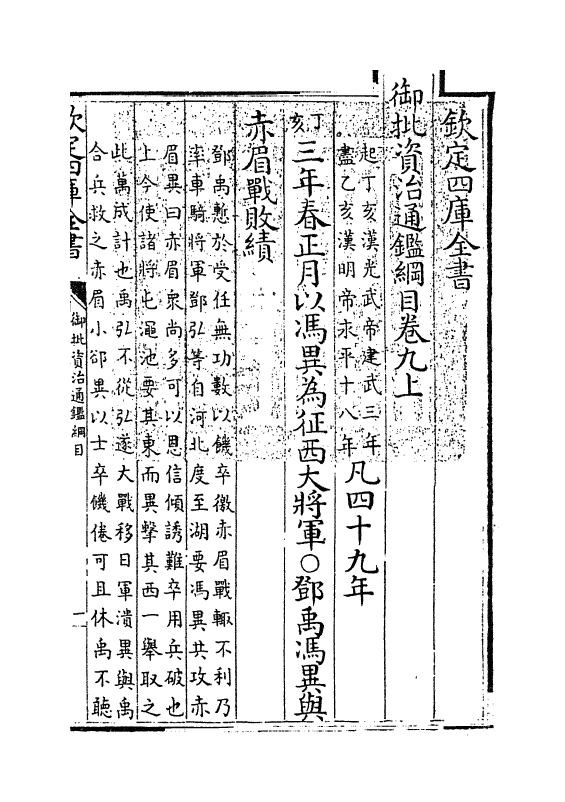 欽定四庫全書
御批資治通鑑綱目卷九上
起丁亥漢光武帝建武三年
盡乙亥漢明帝永平十八年
凡四十九年
丁亥
三年春正月以馮異為征西大將軍○鄧禹馮異與
赤眉戰敗績
鄧禹慙於受任無功數以饑卒徼赤眉戰輒不利乃
率車騎將軍鄧弘等自河北度至湖要馮異共攻赤
眉異曰赤眉衆尚多可以恩信傾誘難卒用兵破也
上今使諸將屯澠池要其東而異擊其西一舉取之
此萬成計也禹弘不從弘遂大戰移日軍潰異與禹
合兵救之赤眉小郤異以士卒饑倦可且休禹不聽
欽定四庫全書
御批資治通鑑綱目
一